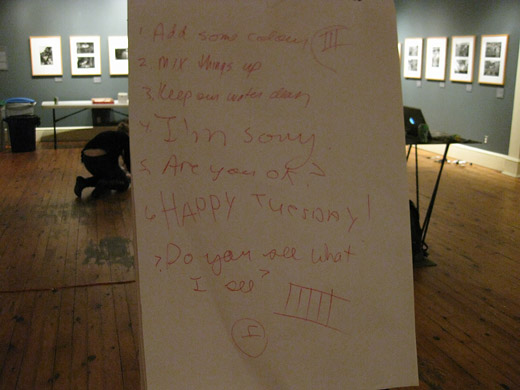 1. Add some colour III
2. Mix things up
3. Keep our water clean
4. I'm sorry.
5. Are you ok?
6. HAPPY TUESDAY!
7. Do you see what
I see?
I